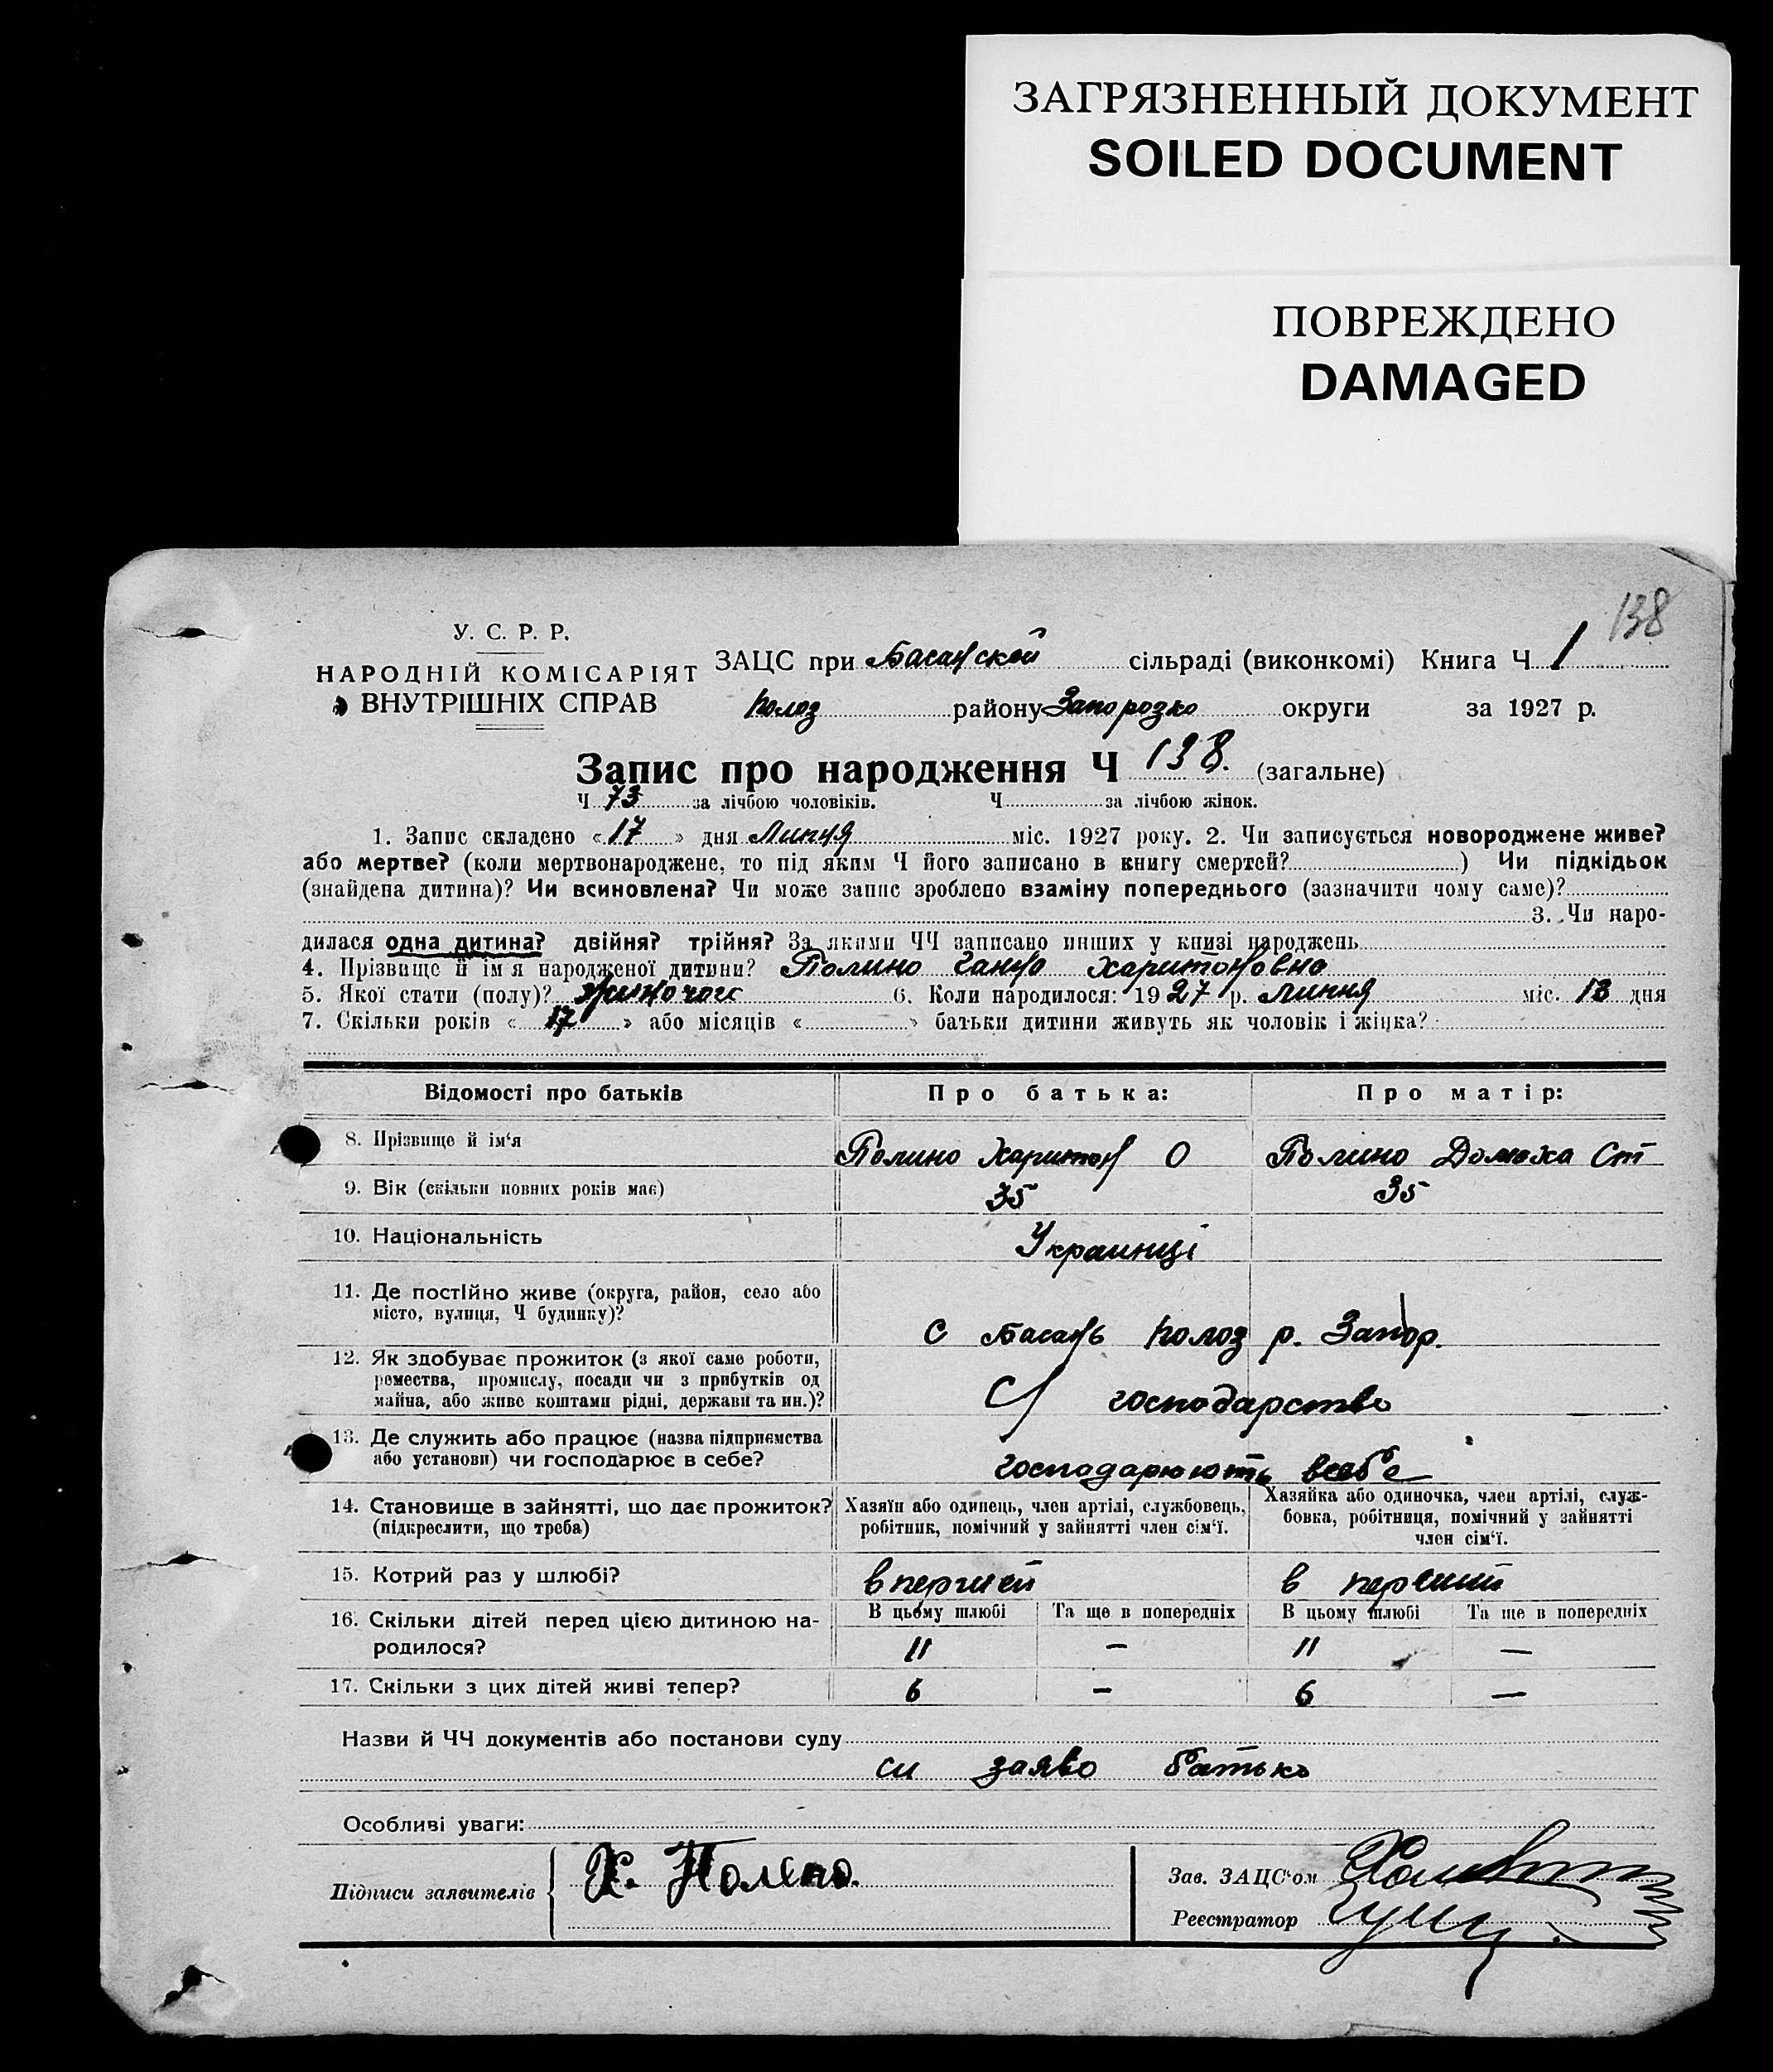 ЗАГРЯЗНЕННЫЙ ДОКУМЕНТ
SOILED DOCUMENT
ПОВРЕЖДЕНО
DAMAGED
138
У. С. Р. Р.
НАРОДНІЙ КОМІСАРІЯТ
ВНУТРІШНІХ СПРАВ
ЗАЦС при Басанской сільраді (виконкомі) Книга Ч 1
Полоз району Запорозко округи за 1927 р.
Запис про народження Ч 138. (загальне)
Ч 73 за лічбою чоловіків. Ч за лічбою жінок.
1. Запис складено «17» дня Липня міс. 1927 року. 2. Чи записується новороджене живе?
або мертве? (коли мертвонароджене, то під яким Ч його записано в книгу смертей? ) Чи підкідьок
(знайдена дитина)? Чи всиновлена? Чи може запис зроблено взаміну попереднього (зазначити чому саме)?
3. Чи наро-
дилася одна дитина? двійня? трійня? За якими ЧЧ записано инших у книзі народжень
4. Прізвище й ім'я народженої дитини? Полино Ганна Харитоновна
5. Якої стати (полу)? жиночои 6. Коли народилося: 1927 р. Липня міс. 13 дня
7. Скільки років «17» або місяців « » батьки дитини живуть як чоловік і жінка?
Відомості про батьків Про батька: Про матір:
8. Прізвище й ім'я Полино Харитон О Полино Домаха Ст
9. Вік (скільки повних років має) 35 35
10. Національність Украинці
11. Де постійно живе (округа, район, село або
місто, вулиця, Ч будинку)? с Басань Полоз р. Запор.
12. Як здобуває прожиток (з якої саме роботи,
ремества, промислу, посади чи з прибутків од
майна, або живе коштами рідні, держави та ин.)? С/ господарство
13. Де служить або працює (назва підприємства
або установи) чи господарює в себе? господарюють всебе
14. Становище в зайнятті, що дає прожиток? Хазяїн або одинець, член артілі, службовець, Хазяйка або одиночка, член артілі, служ-
(підкреслити, що треба) робітник, помічний у зайнятті член сім'ї. бовка, робітниця, помічний у зайнятті
член сім'ї.
15. Котрий раз у шлюбі? впершей в першый
16. Скільки дітей перед цією дитиною на- В цьому шлюбі Та ще в попередніх В цьому шлюбі Та ще в попередніх
родилося? 11 — 11 —
17. Скільки з цих дітей живі тепер? 6 — 6 —
Назви й ЧЧ документів або постанови суду
заяво батько
Особливі уваги:
Підписи заявителів Х. Полено.
Зав. ЗАЦС'ом
Реєстратор